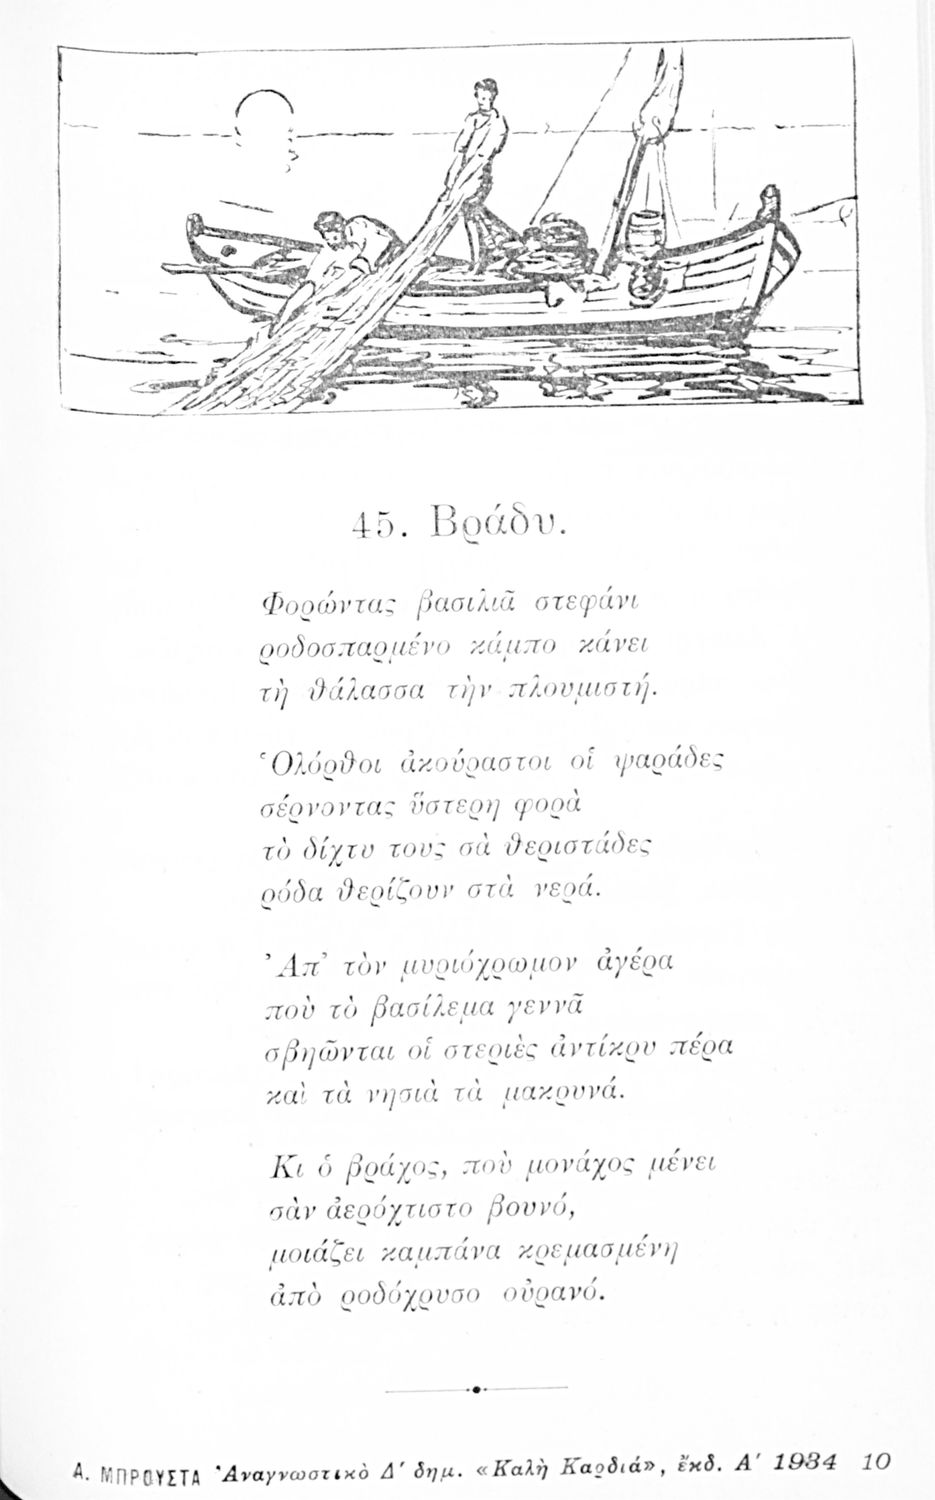 45. Βράδυ.
Φορώντας βασιλιᾶ στεφάνι
ροδοσπαρμένο κάμπο κάνει
τὴ θάλασσα τὴν πλουμιστή.
Ὁλόρθοι ἀκούραστοι οἱ ψαράδες
σέρνοντας ὕστερη φορὰ
τὸ δίχτυ τους σὰ θεριστάδες
ρόδα θερίζουν στὰ νερά.
Ἀπ' τὸν μυριόχρωμον ἀγέρα
ποὺ τὸ βασίλεμα γεννᾶ
σβηῶνται οἱ στεριὲς ἀντίκρυ πέρα
καὶ τὰ νησιὰ τὰ μακρυνά.
Κι ὁ βράχος, ποὺ μονάχος μένει
σὰν ἀερόχτιστο βουνό,
μοιάζει καμπάνα κρεμασμένη
ἀπὸ ροδόχρυσο οὐρανό.
Α. ΜΠΡΟΥΣΤΑ Ἀναγνωστικὸ Δ' δημ. «Καλὴ Καρδιά», ἔκδ. Α' 1934 10